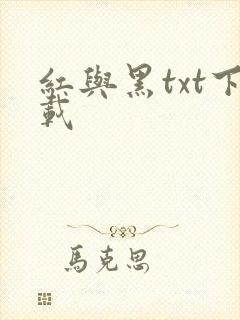 紅與黑txt下
載
馬克思